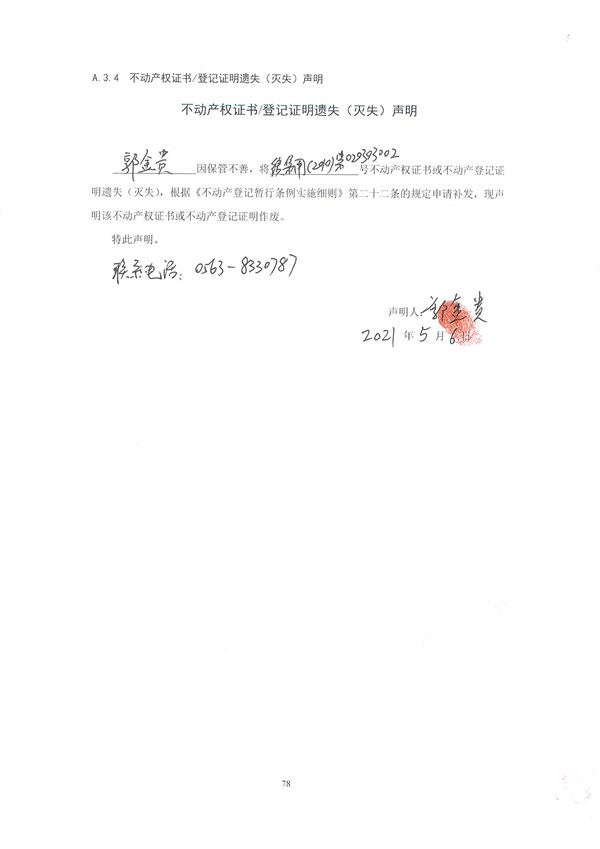 A.3.4 不动产权证书/登记证明遗失（灭失）声明
不动产权证书/登记证明遗失（灭失）声明
郭金贵 因保管不善，将绩集用(2010)第029393002号不动产权证书或不动产登记证
明遗失（灭失），根据《不动产登记暂行条例实施细则》第二十二条的规定申请补发，现声
明该不动产权证书或不动产登记证明作废。
特此声明。
联系电话：0563-8330787
声明人：郭金贵
2021 年 5 月 6 日
78